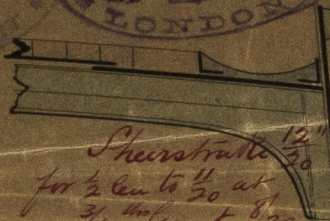 LONDON
Sheerstrake 12/20"
for 1/2 len to 11/20 at
3/4